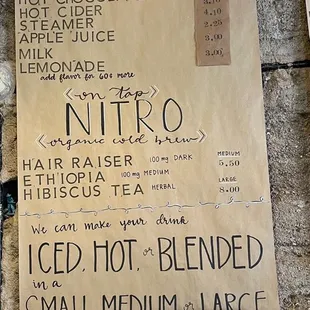 HOT CHOCOL
HOT CIDER 4.10
STEAMER 2.25
APPLE JUICE 3.00
MILK 3.00
LEMONADE
add flavor for 60¢ more
on tap
NITRO
organic cold brew
HAIR RAISER 100mg DARK MEDIUM 5.50
ETHIOPIA 100mg MEDIUM LARGE
HIBISCUS TEA HERBAL 8.00
We can make your drink
ICED, HOT, or BLENDED
in a
SMALL MEDIUM or LARGE